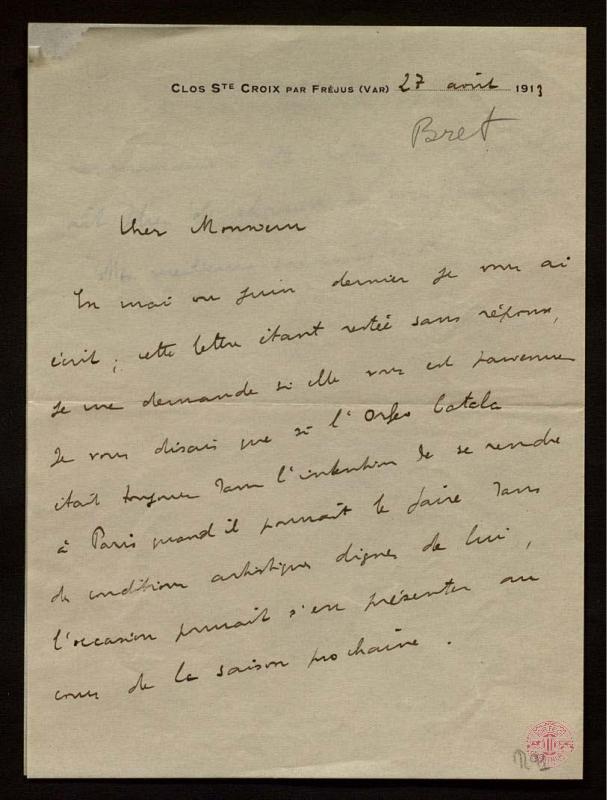 CLOS STE CROIX PAR FRÉJUS (VAR) 27 août 1913
Bret
Cher Monsieur
En mai ou juin dernier je vous ai
écrit ; cette lettre étant restée sans réponse,
je me demande si elle vous est parvenue
Je vous disais que si l'Orfeo Catala
était toujours dans l'intention de se rendre
à Paris quand il pourrait le faire dans
des conditions artistiques dignes de lui,
l'occasion pourrait s'en présenter au
cours de la saison prochaine.